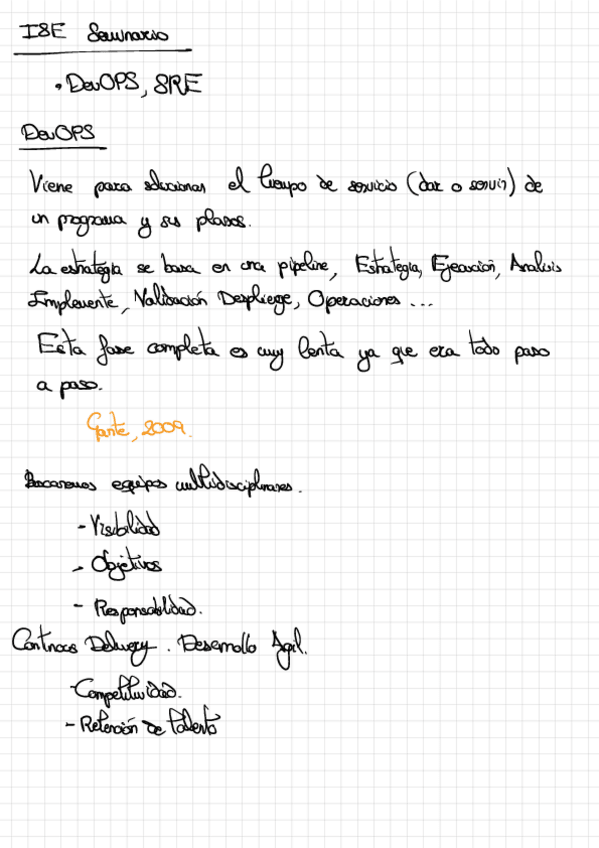 ISE Seminario
• DevOPS, SRE
DevOPS
Viene para solucionar el tiempo de servicio (dar o servir) de
un programa y sus plazos.
La estrategia se basa en una pipeline, Estrategia, Ejecución, Analisis
Implemente, Validación Despliege, Operaciones ...
Esta fase completa es muy lenta ya que era todo paso
a paso.
Gante, 2009.
Buscaremos equipos multidisciplinares.
- Visibilidad
- Objetivos
- Responsabilidad.
Continous Delivery. Desarrollo Agil.
- Competitividad.
- Retención de talento